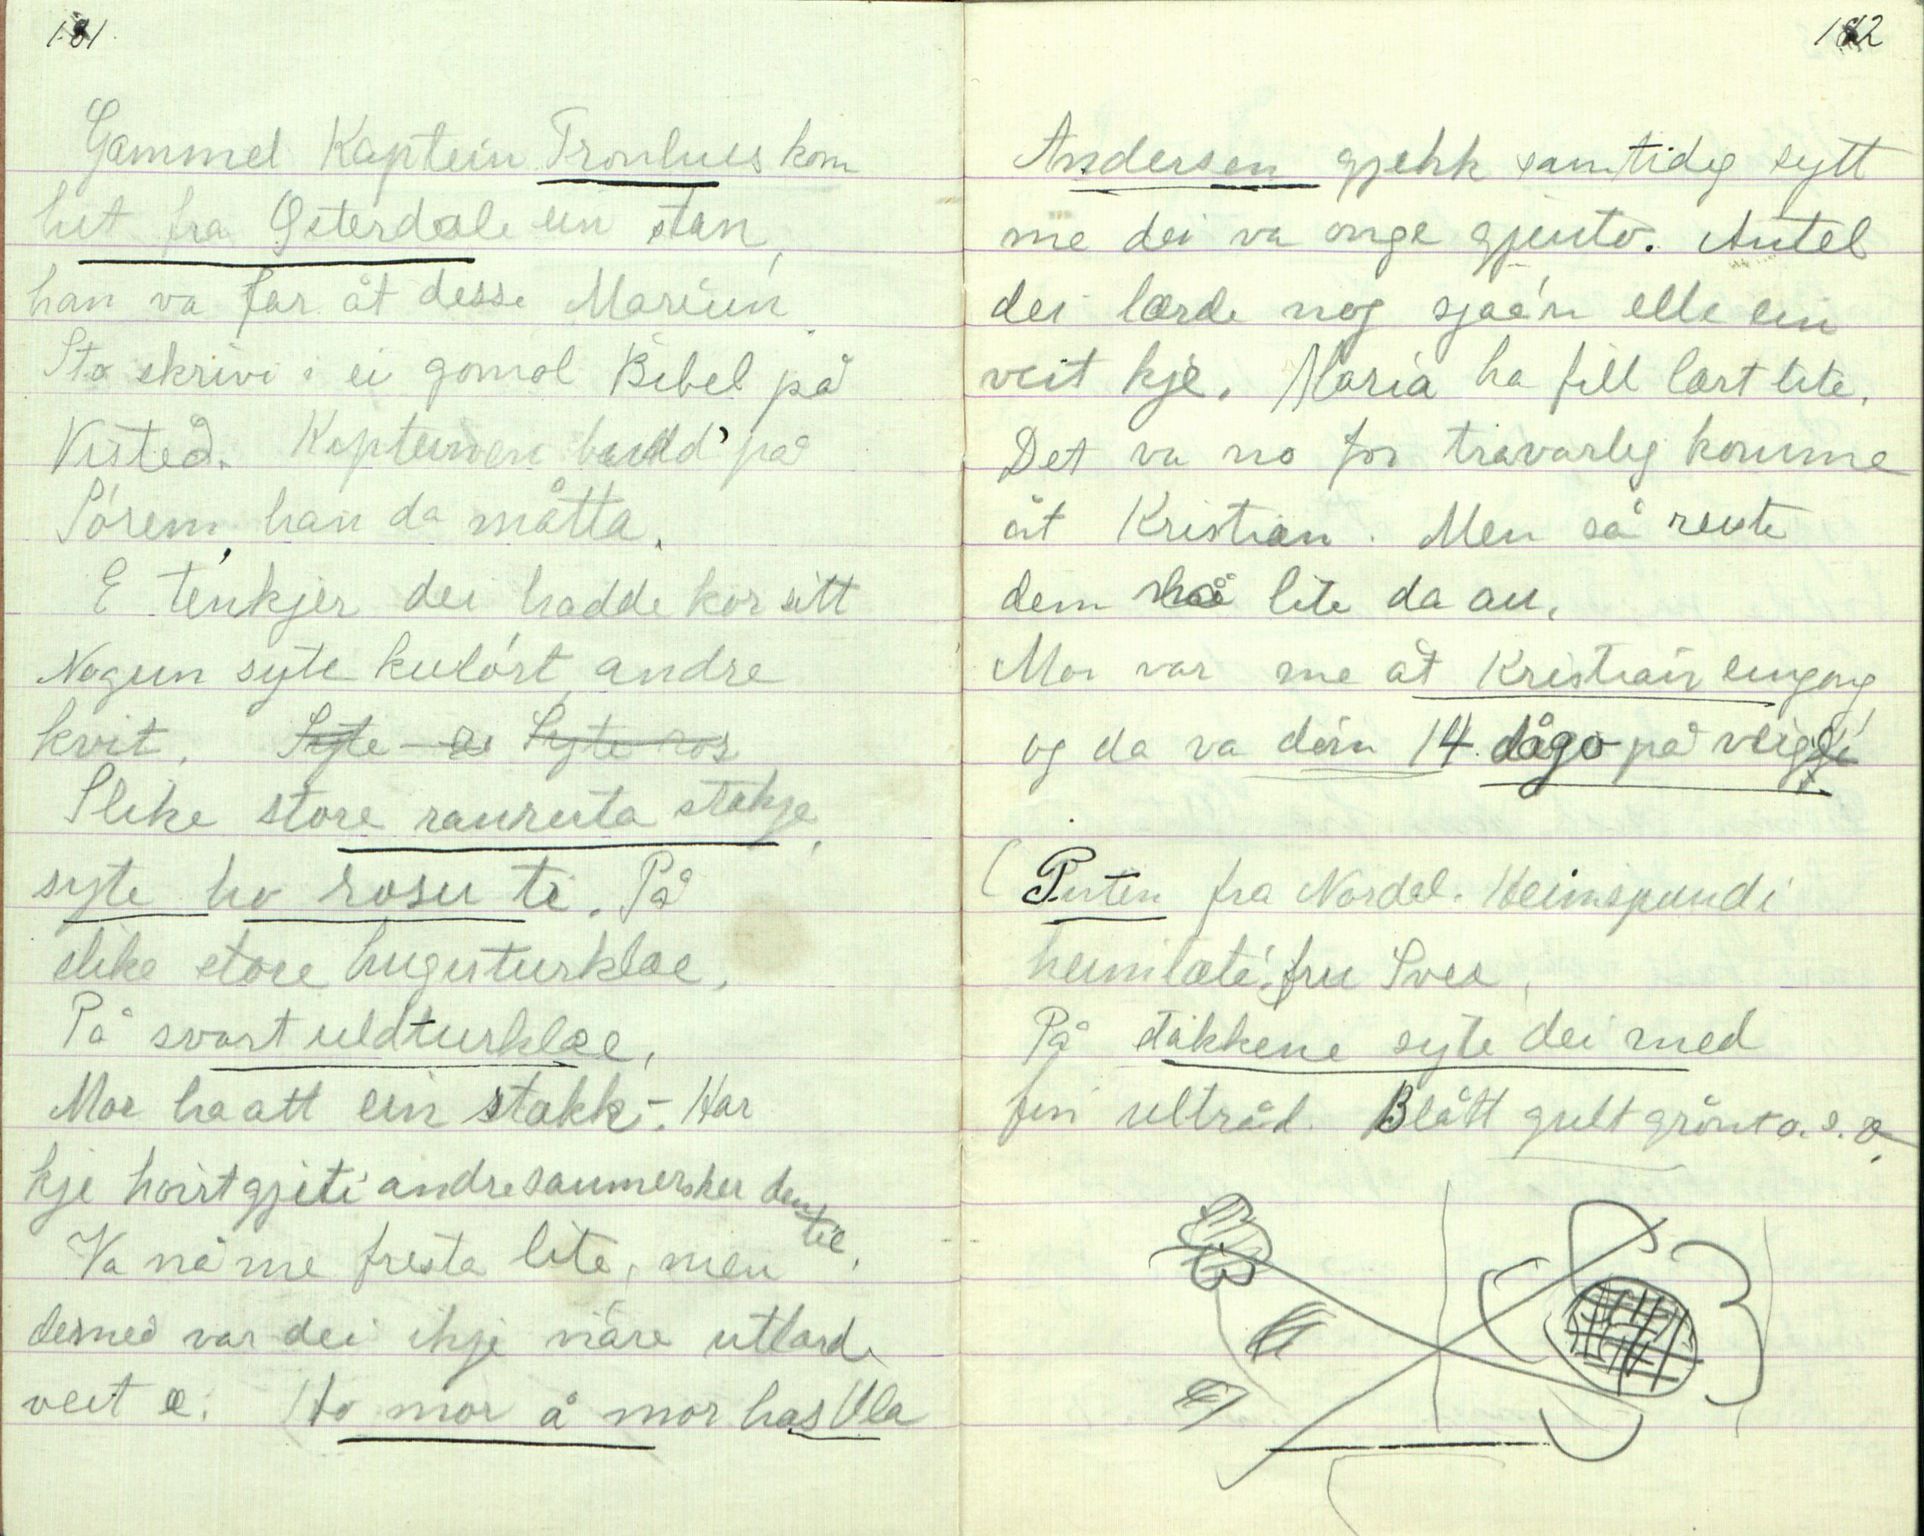 181
Gammel Kaptein Tronhus kom
hit fra Østerdale ein stan,
han va far åt desse Mariun
Sto skrivi i ei gomol Bibel på
Visted. Kapteinen budd' på
Sórem han da måtta.
E tenkjer dei hadde kor sitt
Nogun syte kulórt, andre
kvit. Syte Syte ros
Slike store rauruta stakje,
syte ho rosu ti. På
slike store hugusturklæ,
På svart uldturklæ,
Mor ha att ein stakk-. Har
kje hoirt gjiti andre saumersker dem
til.
Va nå me fresta lite, men
dermed var dei ikje nåre utlard
veit e. Ho mor å mor has Ula
182
Andersen gjekk samtideg sytt
me dei va onge gjento. Antel
dei lærde nog sjøå'n elle ein
veit kje. Maria ha fill lært lite.
Det va no for travarleg komme
åt Kristian. Men så reiste
dem nå lite da au.
Mor var me åt Kristian eingong
og da va dein 14 dågo på veiggé
(Puten fra Nordal. Heimspundi
heimlæti, fru Svea,
På stakkene syte dei med
fin ultråd. Blått gult grønt o.s.v.